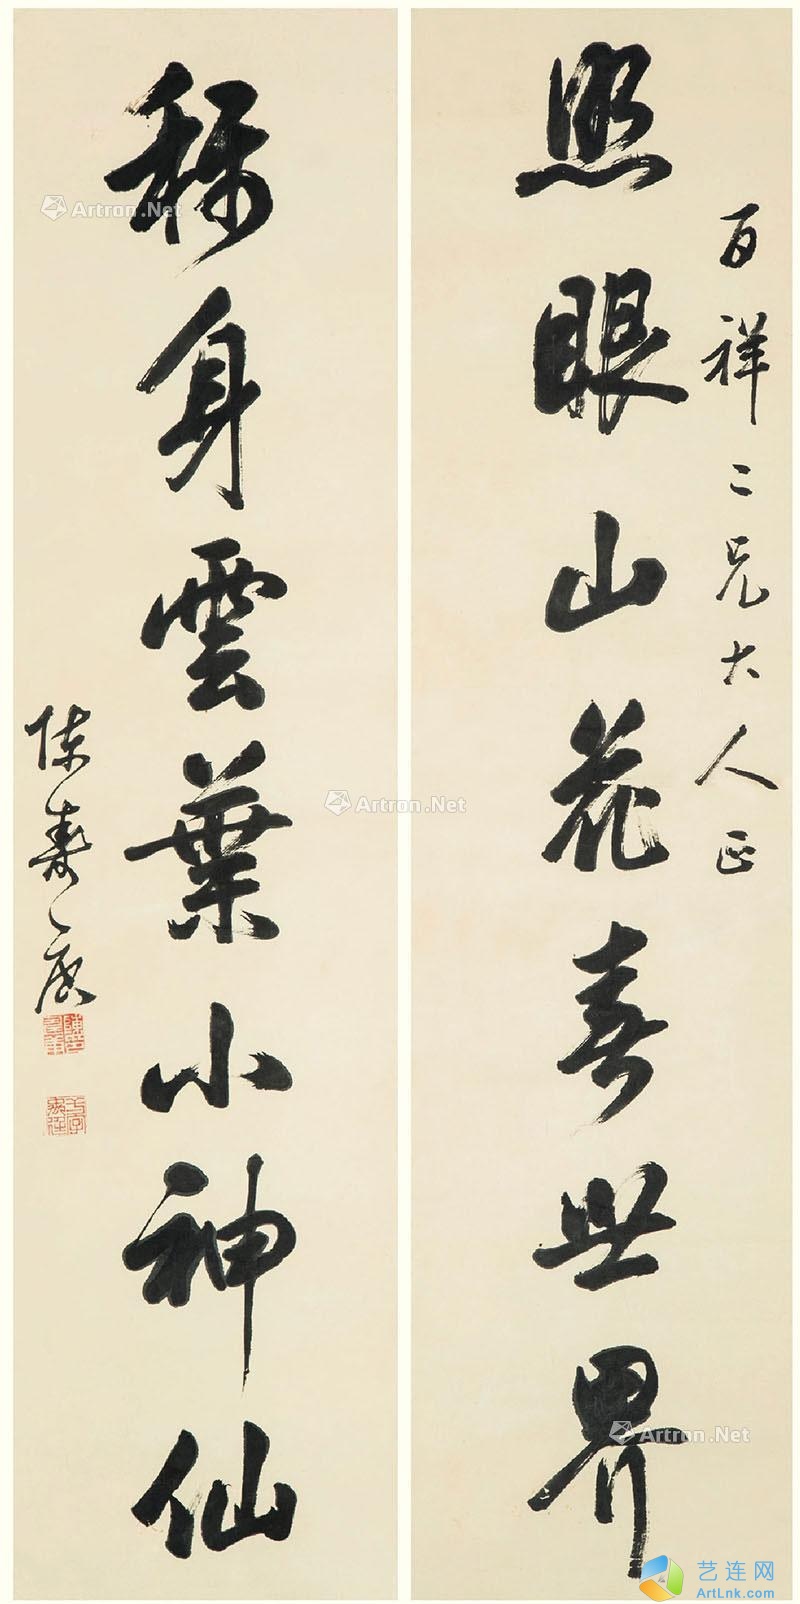 百祥二兄大人正
照眼山花春世界
稱身雲葉小神仙
陳壽
Artron.Net
Artron.Net
Artron.Net
艺连网
ArtLnk.com